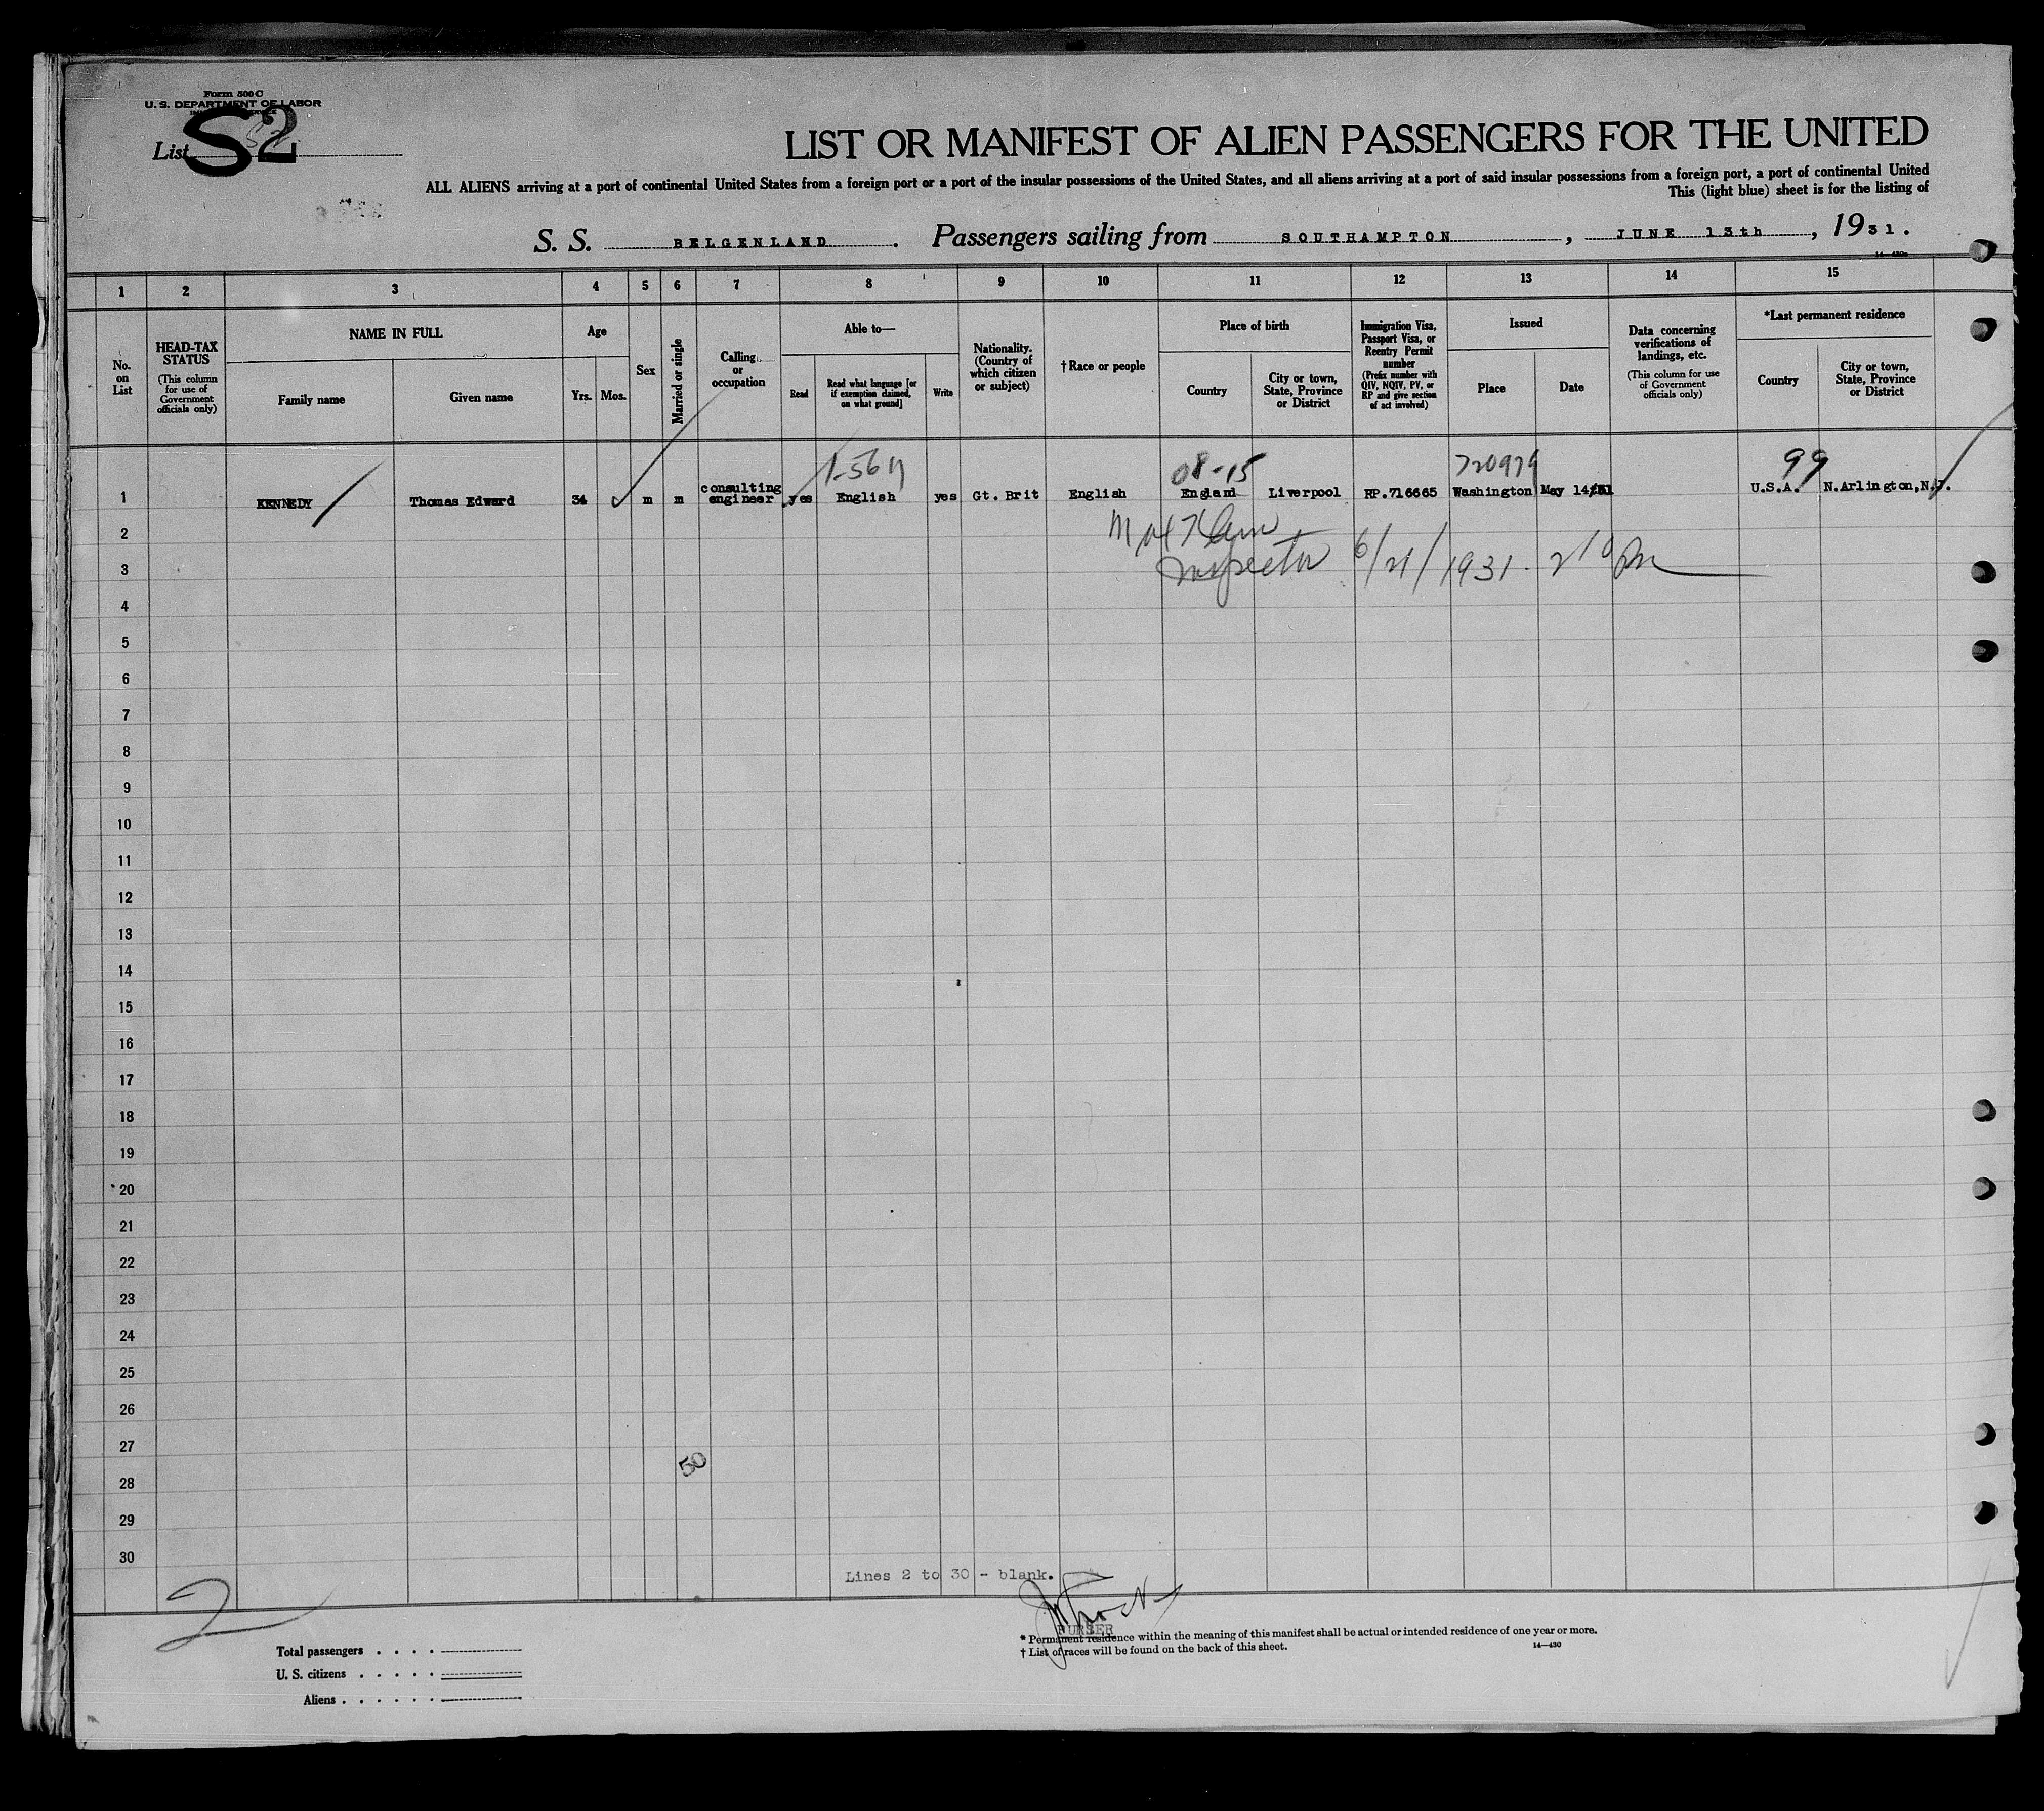 Form 500 C
U. S. DEPARTMENT OF LABOR
List S2
LIST OR MANIFEST OF ALIEN PASSENGERS FOR THE UNITED
ALL ALIENS arriving at a port of continental United States from a foreign port or a port of the insular possessions of the United States, and all aliens arriving at a port of said insular possessions from a foreign port, a port of continental United
This (light blue) sheet is for the listing of
S. S. BELGENLAND. Passengers sailing from SOUTHAMPTON, JUNE 13th, 1931.
1 2 3 4 5 6 7 8 9 10 11 12 13 14 15
No. on List
HEAD-TAX STATUS (This column for use of Government officials only)
NAME IN FULL
Family name
Given name
Age
Yrs. Mos.
Sex
Married or single
Calling or occupation
Able to—
Read
Read what language [or if exemption claimed, on what ground]
Write
Nationality. (Country of which citizen or subject)
†Race or people
Place of birth
Country
City or town, State, Province or District
Immigration Visa, Passport Visa, or Reentry Permit number (Prefix number with QIV, NQIV, PV, or RP and give section of act involved)
Issued
Place
Date
Data concerning verifications of landings, etc. (This column for use of Government officials only)
*Last permanent residence
Country
City or town, State, Province or District
08-15 720979 99
1 KENNEDY Thomas Edward 34 m m consulting engineer yes English yes Gt. Brit English England Liverpool RP.716665 Washington May 14/31 U.S.A. N.Arlington,N.J.
2
Inspector 6/21/1931. 2 10 PM
3
4
5
6
7
8
9
10
11
12
13
14
15
16
17
18
19
20
21
22
23
24
25
26
27
50
28
29
30
Lines 2 to 30 - blank.
2
PURSER
Total passengers
U. S. citizens
Aliens
* Permanent residence within the meaning of this manifest shall be actual or intended residence of one year or more.
† List of races will be found on the back of this sheet.
14—430